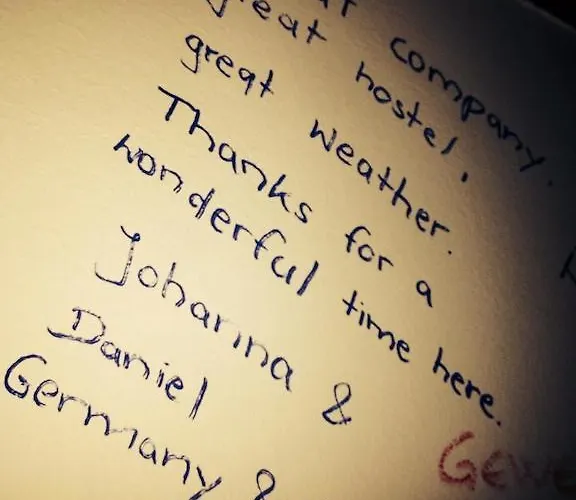 company.
great hostel,
great weather.
Thanks for a
wonderful time here.
Johanna &
Daniel
Germany &